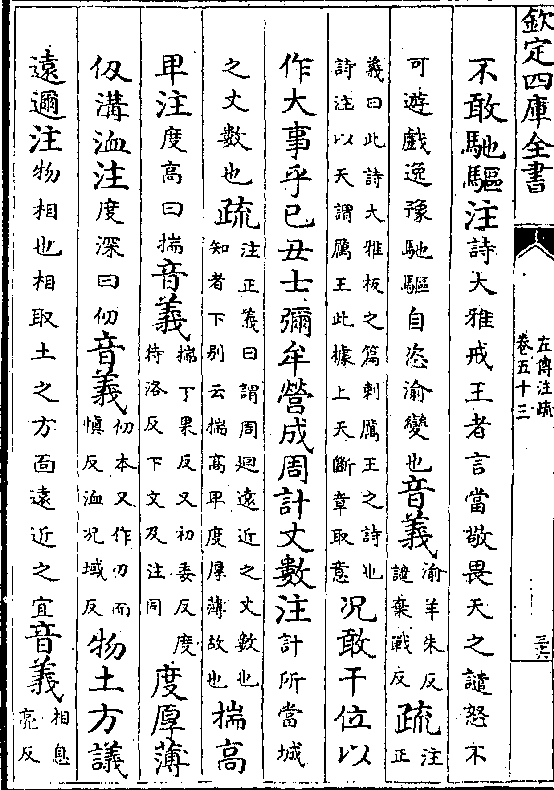 欽定四庫全書
左傳注疏
卷五十三
三六
不敢馳驅注詩大雅戒王者言當敬畏天之譴怒不
可遊戲逸豫馳驅自恣渝變也音義渝羊朱反譴棄戰反疏注正
義曰此詩大雅板之篇刺厲王之詩也詩注以天謂厲王此據上天斷章取意況敢干位以
作大事乎已丑士彌牟營成周計丈數注計所當城
之丈數也疏注正義曰謂周迴遠近之丈數也知者下別云揣高卑度厚薄故也揣高
卑注度高曰揣音義揣丁果反又初委反度待洛反下文及注同度厚薄
仭溝洫注度深曰仞音義仞本又作刃而慎反洫况域反物土方議
遠邇注物相也相取土之方面遠近之宜音義相息亮反